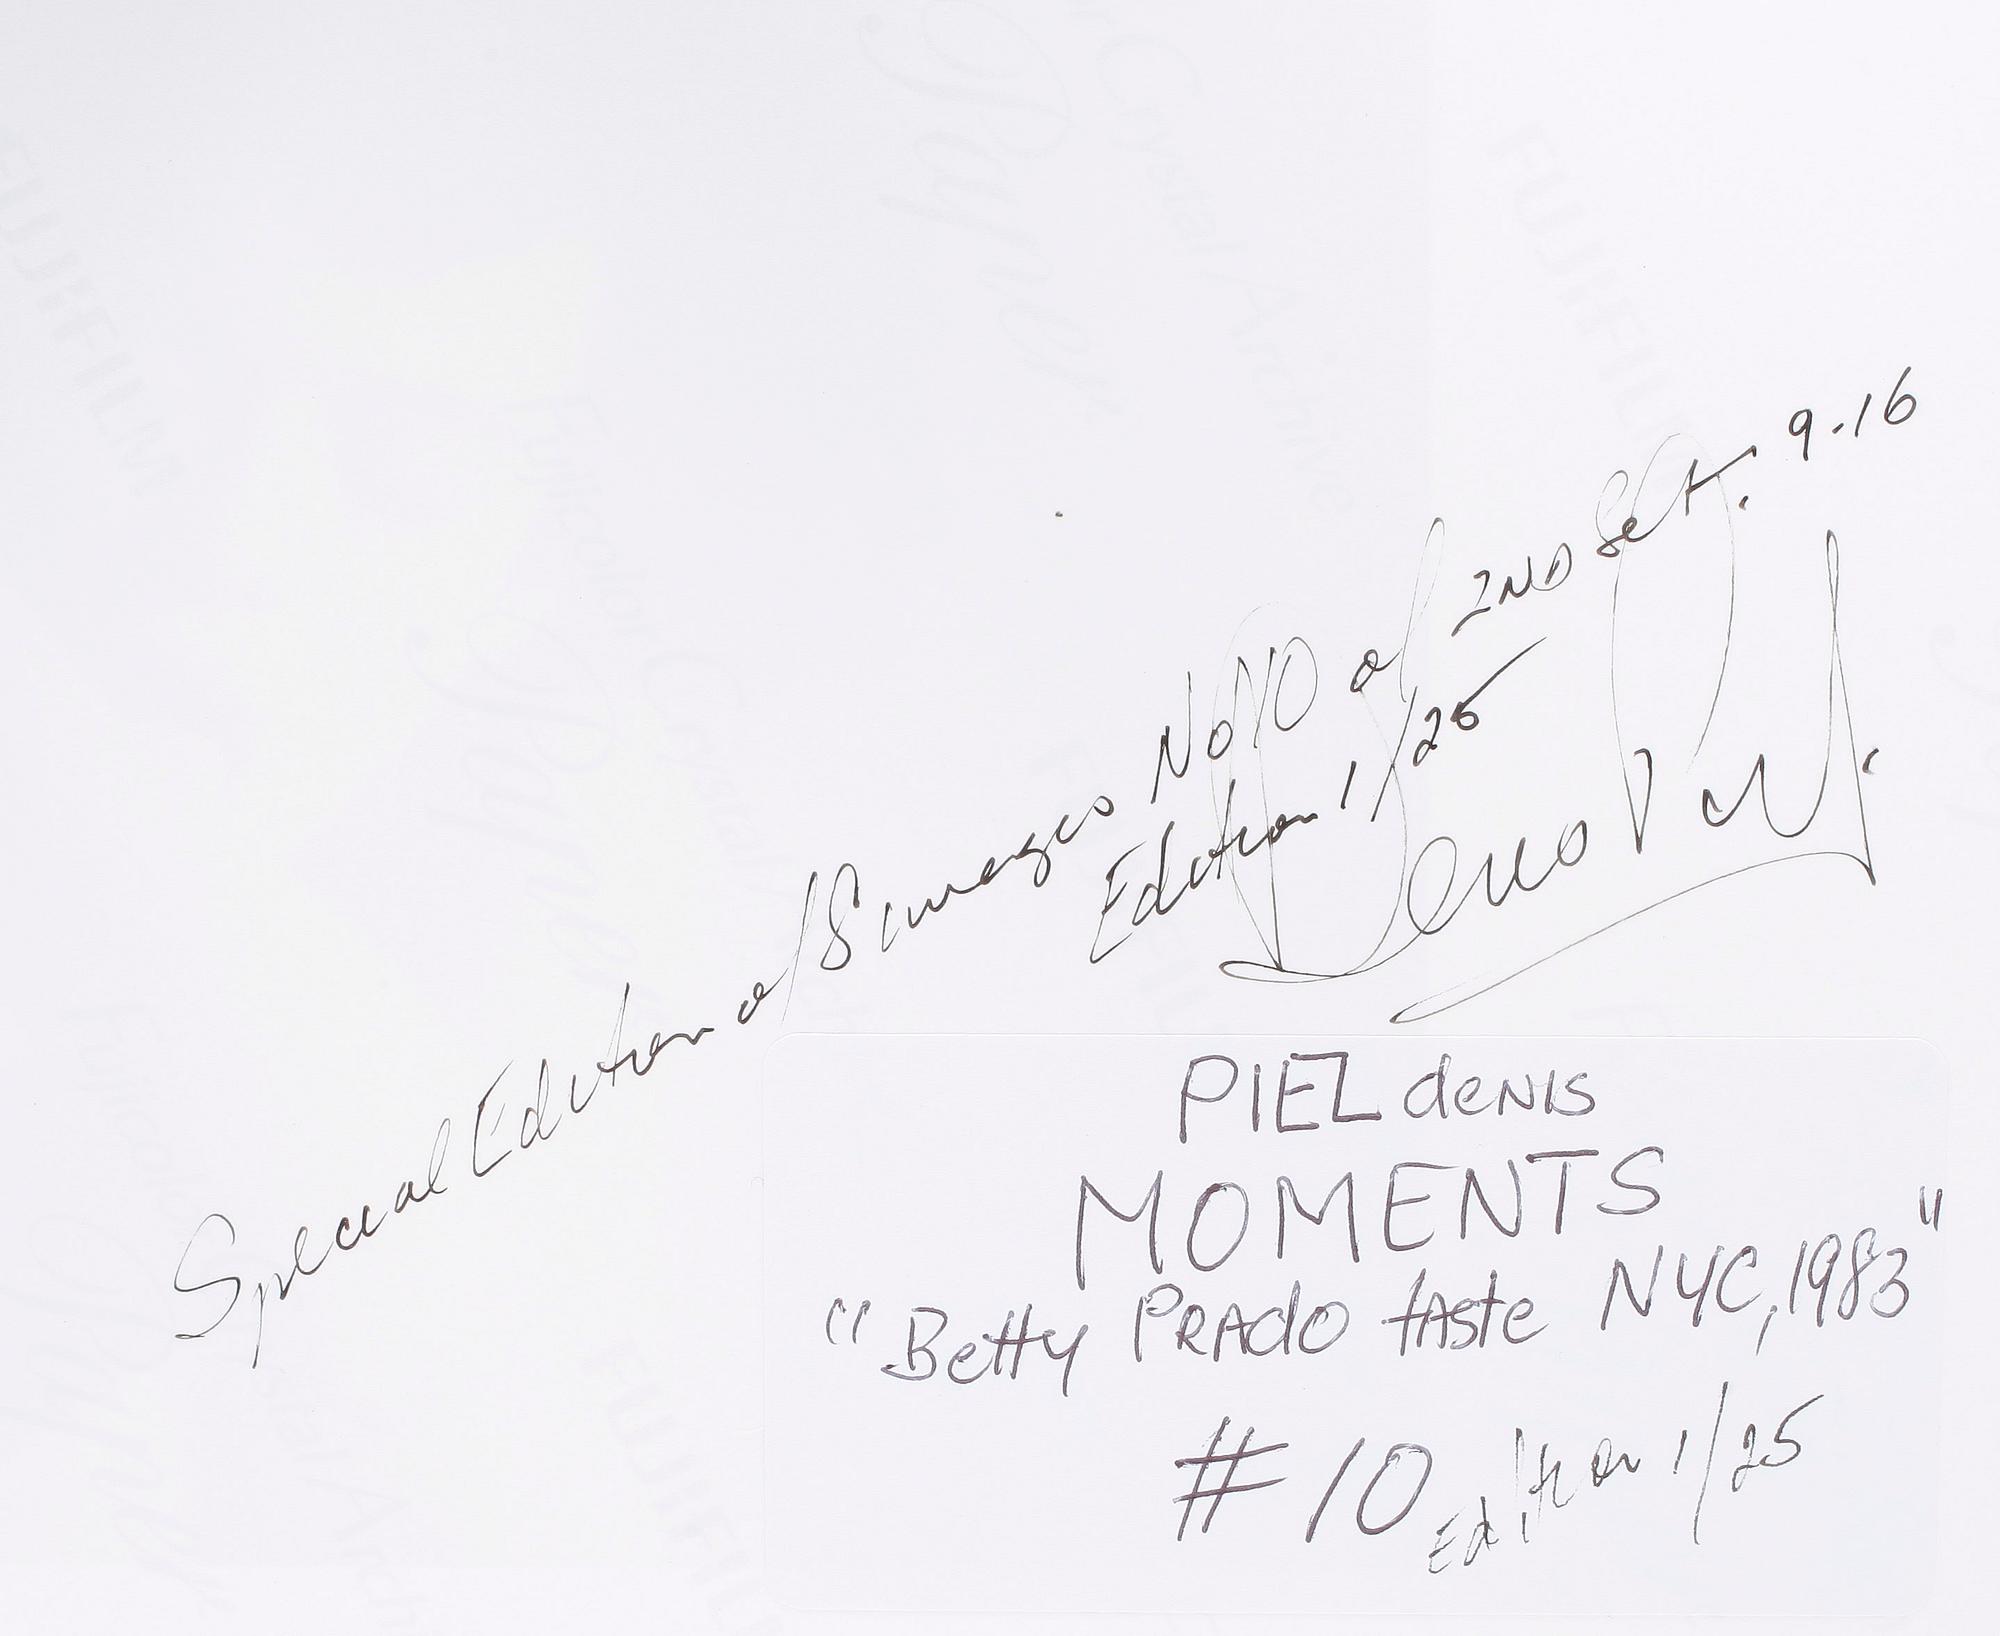 Special Edition of 8 images No 10 of 2ND Set. 9.16
Edition 1/25
Denis Piel.
PIEL denis
MOMENTS
"Betty PRAdo tAste NYC, 1983"
# 10 Edition 1/25
FUJIFILM
Fujicolor Crystal Archive
Paper